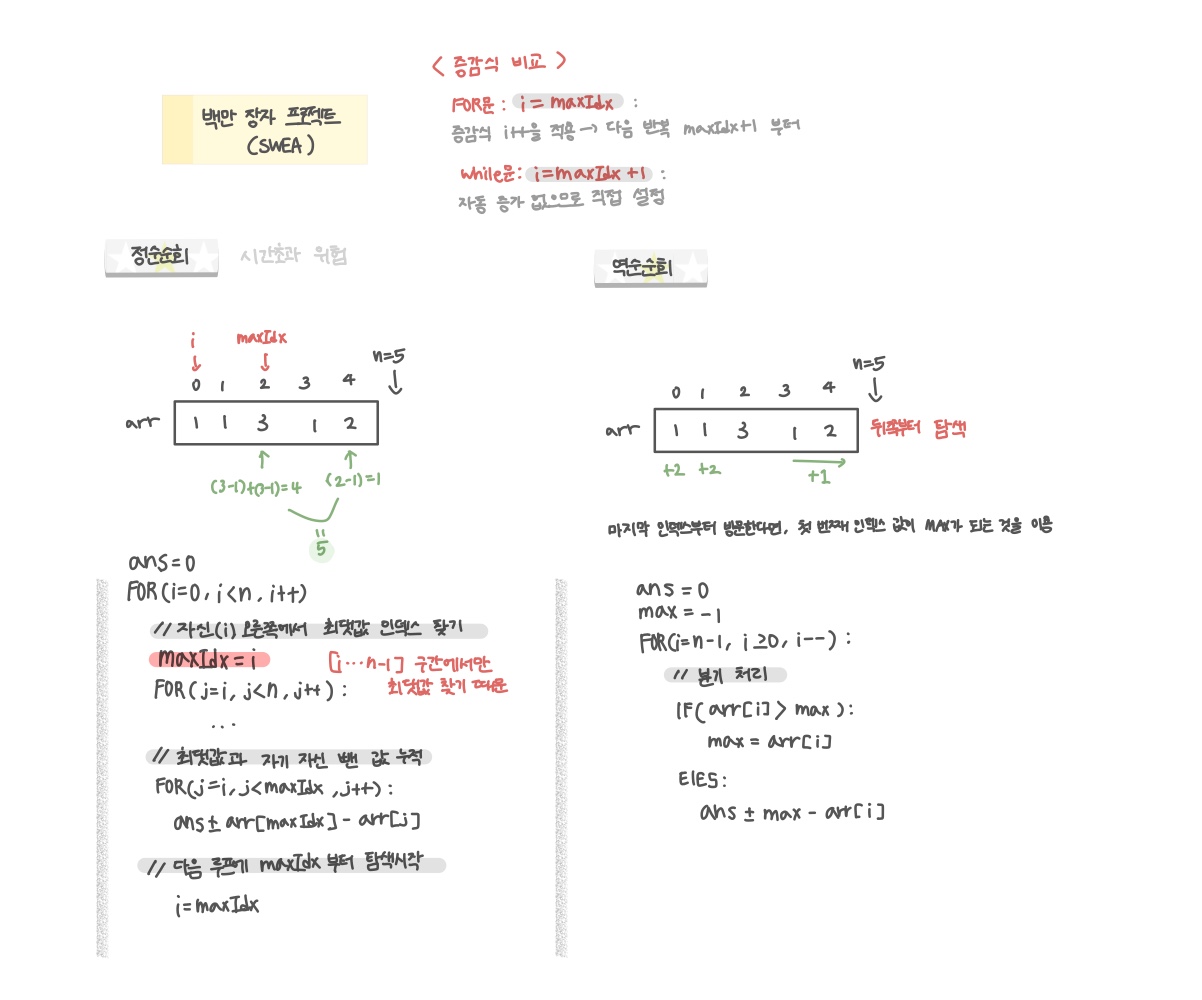 < 증감식 비교 >
백만 장자 프로젝트
(SWEA)
FOR문 : i = maxIdx :
증감식 i++을 적용 → 다음 반복 maxIdx+1 부터
while문: i=maxIdx +1 :
자동 증가 없으므로 직접 설정
정순순회 시간초과 위험
i maxIdx
n=5
0 1 2 3 4
arr 1 1 3 1 2
(3-1)+(3-1)=4 (2-1)=1
=
5
ans=0
FOR(i=0, i<n, i++)
// 자신(i) 오른쪽에서 최댓값 인덱스 찾기
maxIdx = i [i···n-1] 구간에서만
최댓값 찾기 때문
FOR(j=i, j<n, j++) :
...
// 최댓값과 자기 자신 뺀 값 누적
FOR(j=i, j<maxIdx, j++) :
ans ± arr[maxIdx] - arr[j]
// 다음 루프에 maxIdx 부터 탐색시작
i=maxIdx
역순순회
n=5
0 1 2 3 4
arr 1 1 3 1 2 뒤쪽부터 탐색
+2 +2 +1
마지막 인덱스부터 방문한다면, 첫 번째 인덱스 값이 MAX가 되는 것을 이용
ans = 0
max = -1
FOR(i=n-1, i≥0, i--) :
// 분기 처리
IF( arr[i] > max ) :
max = arr[i]
ElES :
ans ± max - arr[i]